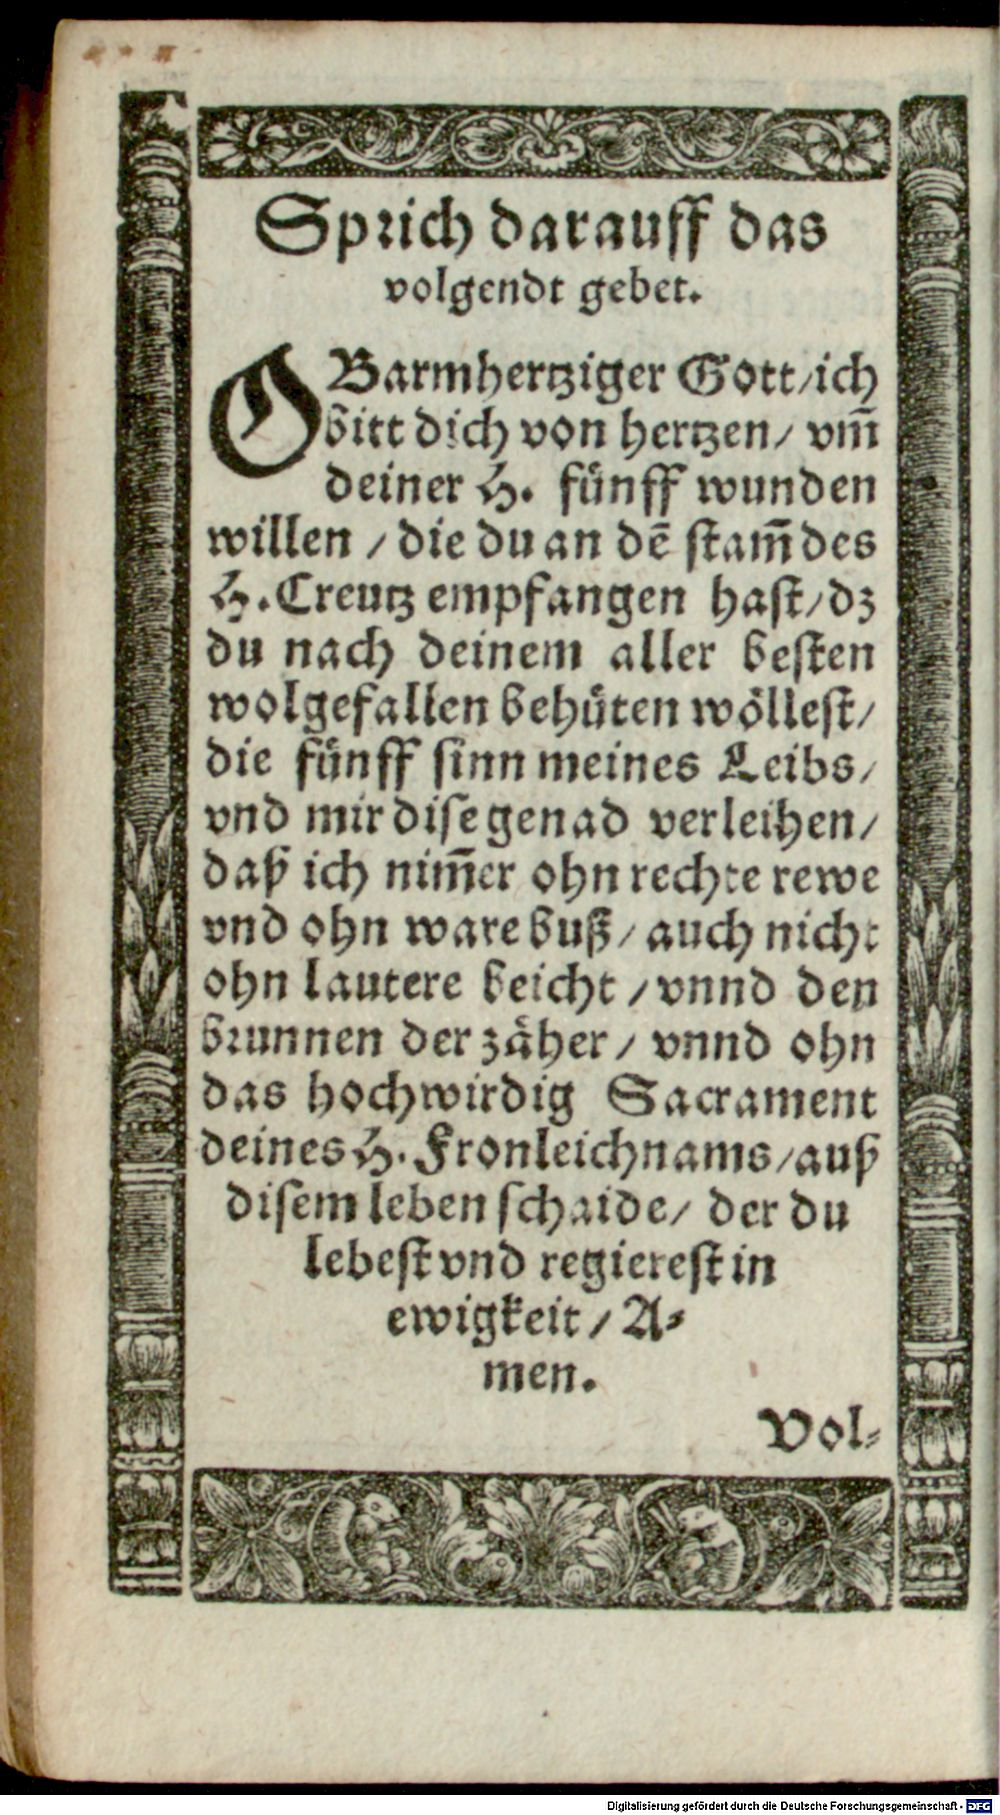 Sprich darauff das
volgendt gebet.
O Barmhertziger Gott/ich
bitt dich von hertzen/ vm̄
deiner H. fünff wunden
willen / die du an dē stam̄ des
H. Creutz empfangen hast/dz
du nach deinem aller besten
wolgefallen behüten wöllest/
die fünff sinn meines Leibs/
vnd mir dise genad verleihen/
daß ich nim̄er ohn rechte rewe
vnd ohn ware buß/ auch nicht
ohn lautere beicht / vnnd den
brunnen der zäher/ vnnd ohn
das hochwirdig Sacrament
deines H. Fronleichnams/auß
disem leben schaide/ der du
lebest vnd regierest in
ewigkeit / A-
men.
Vol-
Digitalisierung gefördert durch die Deutsche Forschungsgemeinschaft - DFG